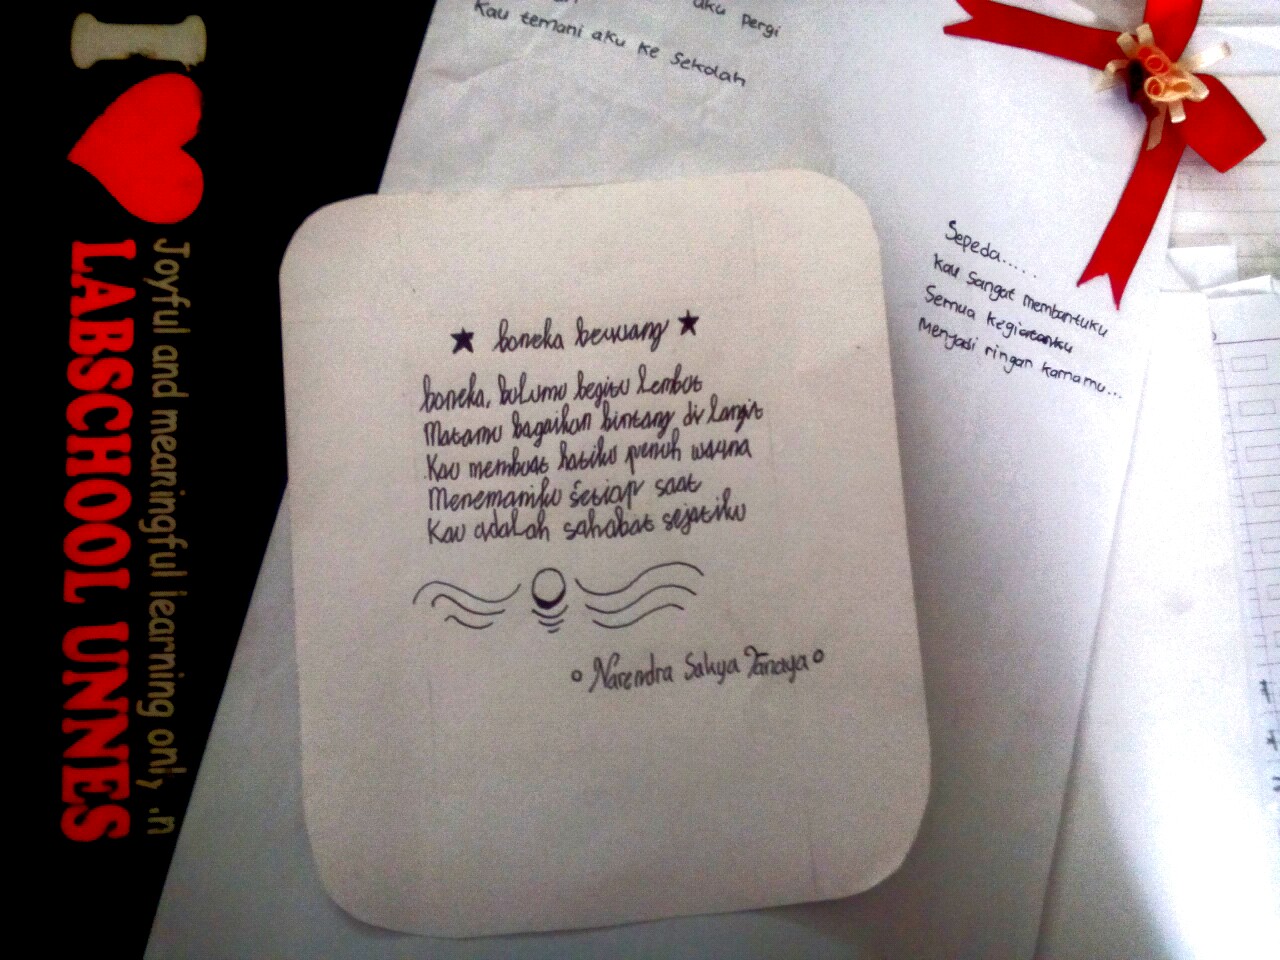 aku pergi
Kau temani aku ke Sekolah
I
Joyful and meaningful learning on
LABSCHOOL UNNES
Sepeda.....
Kau Sangat membantuku
Semua Kegiatanku
Menjadi ringan karnamu...
★ boneka beruang ★
boneka, bulumu begitu lembut
Matamu bagaikan bintang di langit
Kau membuat hatiku penuh warna
Menemaniku setiap saat
Kau adalah sahabat sejatiku
Narendra Satya Tanaya